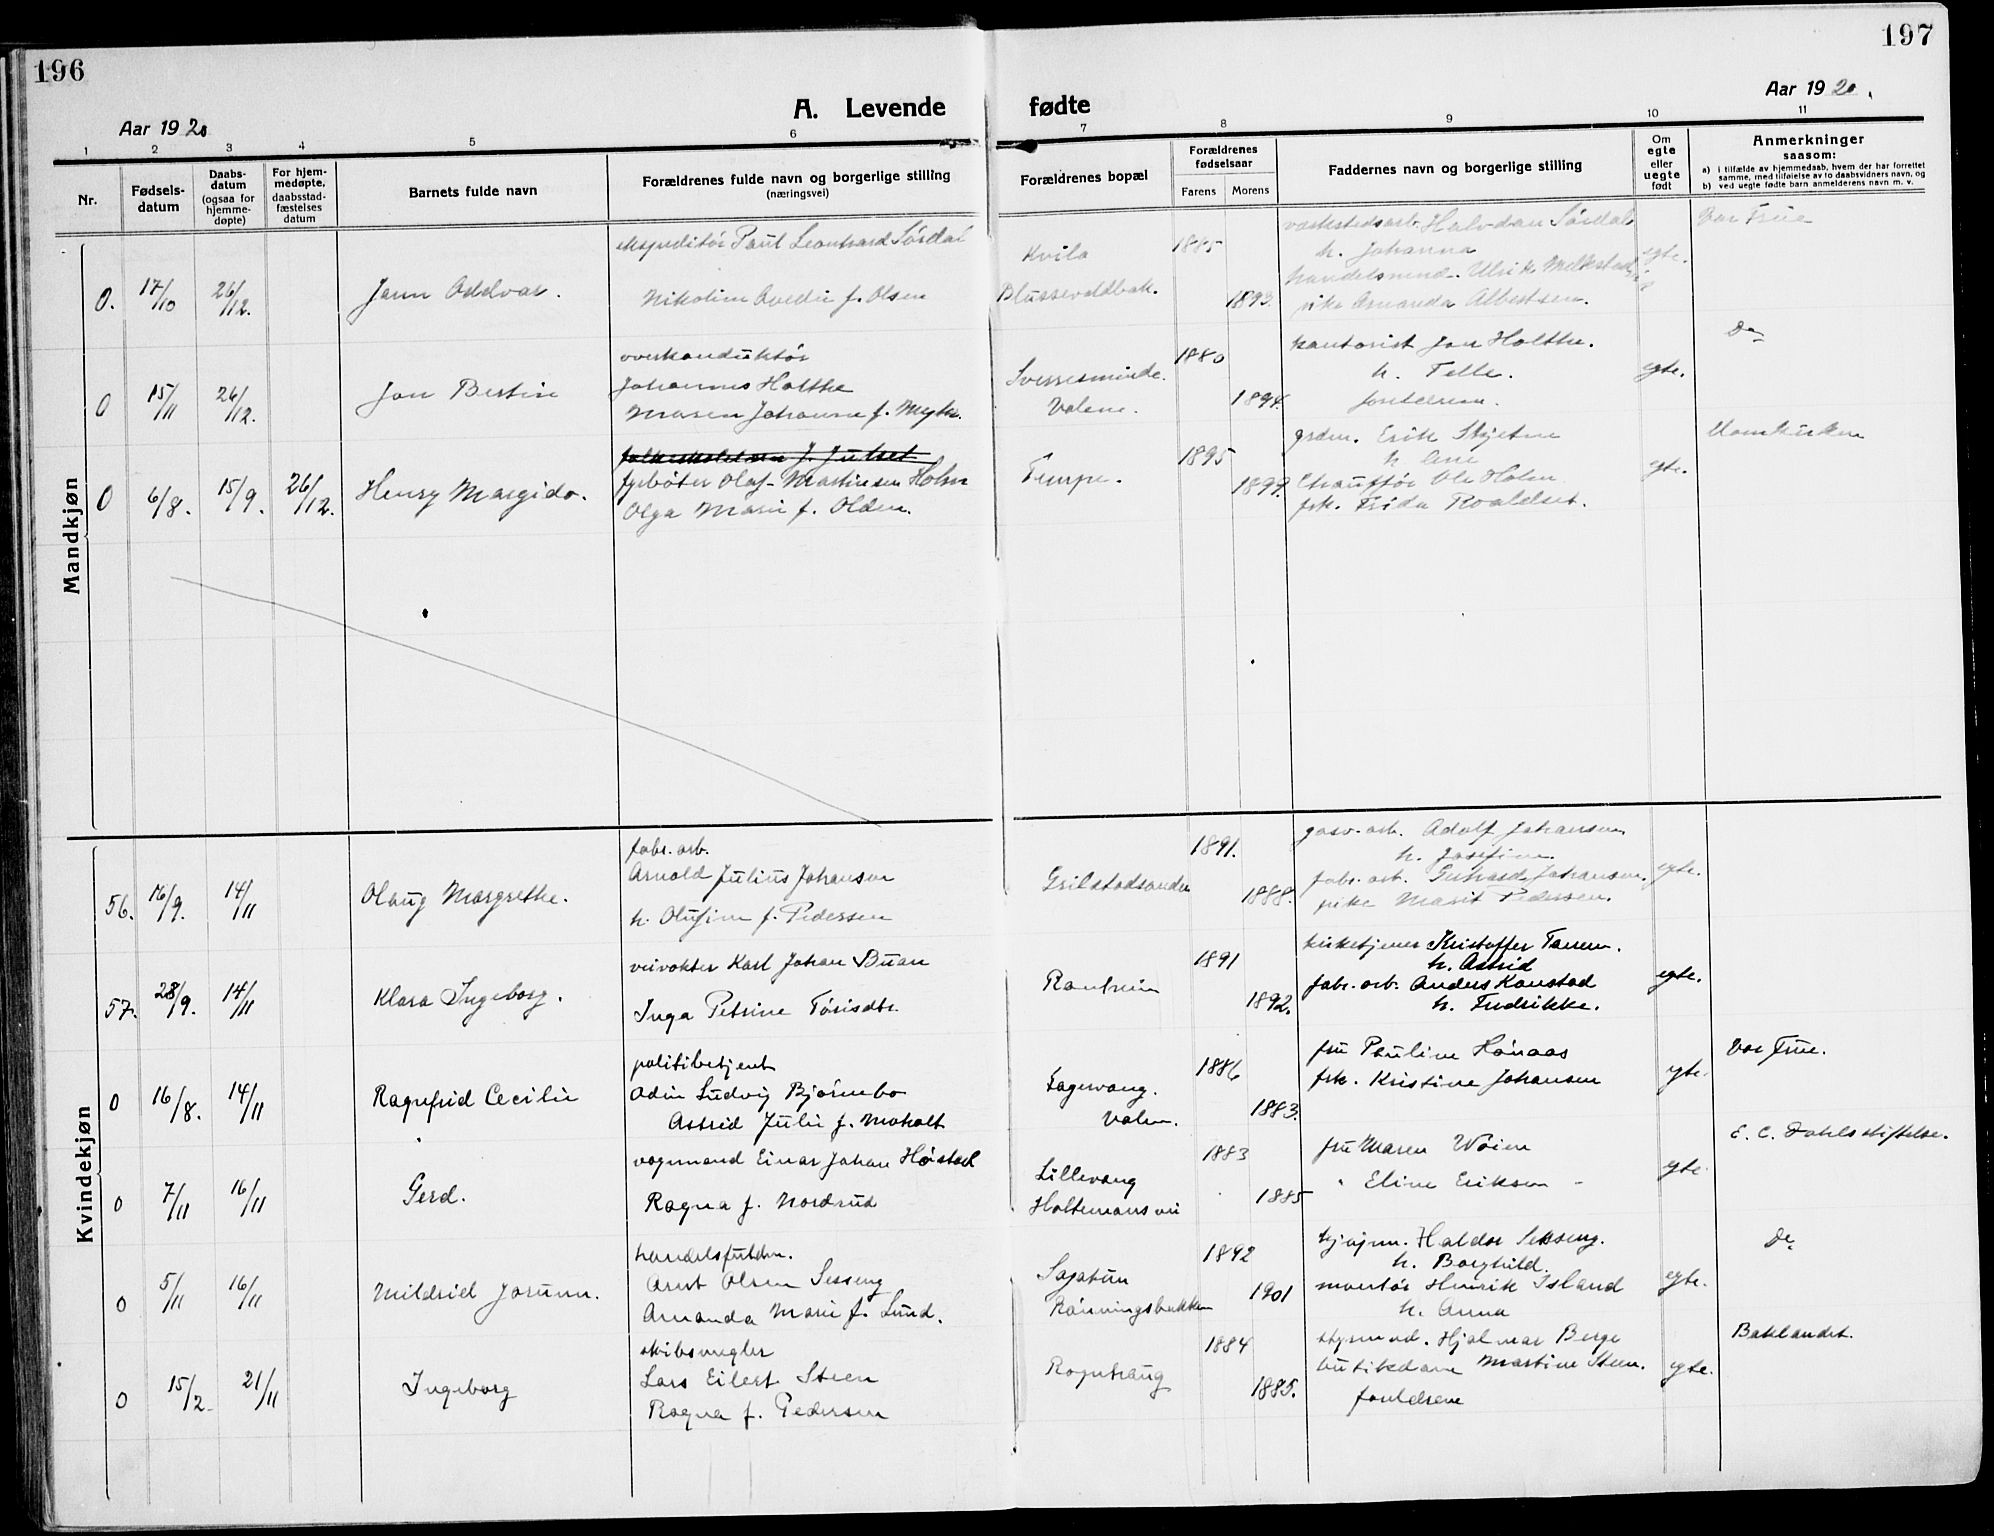 196
197
A. Levende fødte
Aar 1920
Aar 1920.
1 2 3 4 5 6 7 8 9 10 11
Nr.
Fødsels-
datum
Daabs-
datum
(ogsaa for
hjemme-
døpte)
For hjem-
medøpte,
daabsstad-
fæstelses
datum
Barnets fulde navn
Forældrenes fulde navn og borgerlige stilling
(næringsvei)
Forældrenes bopæl
Forældrenes
fødselsaar
Farens Morens
Faddernes navn og borgerlige stilling
Om
egte
eller
uegte
født
Anmerkninger
saasom:
a) i tilfælde av hjemmedaab, hvem der har forrettet
samme, med tilføielse av to daabsvidners navn, og
b) ved uegte fødte barn anmelderens navn m. v.
Mandkjøn
0. 17/10 26/12.
Jann Oddvar.
ekspeditør Paul Leonhard Sørdal
Nikoline f. Olsen
Kvila
1885
1893.
verkstedsarb. Halvdan Sørdal
h. Johanna
handelsmend. Ulrik
pike Amanda Albertsen.
egte.
Vor Frue
0 15/11 26/12.
Jon Bertin
overkonduktør
Johannes Holthe
Maren Johanne f. Myhr.
Sverresminde.
Valene.
1880
1894.
kontorist Jon Holthe.
h. Telle.
foreldrene.
egte.
Do
0 6/8. 15/9. 26/12.
Henry Margido.
fyrbøter Olaf Martinsen Holm
Olga Marie f. Olden.
Tempe.
1895
1899.
grdm. Erik Skjetne
h. Ane
Chauffør Ole Holm
frk. Frida Roaldset.
egte.
Domkirken
Kvindekjøn
56. 16/9. 14/11
Olaug Margrethe.
fabr. arb.
Arnold Julius Johansen
h. Olufine f. Pedersen
Grilstadsanden
1891.
1888.
gasv. arb. Adolf Johansen
h. Josefine.
fabr. arb. Gerhard Johansen.
pike Marit Pedersen.
egte.
57. 28/9. 14/11
Klara Ingeborg.
veivokter Karl Johan Buan
Inga Petrine Tørisdtr.
Ranheim
1891
1892.
kirketjener Kristoffer Tanem.
h. Astrid
fabr. arb. Anders Kanstad
h. Fredrikke.
egte.
0 16/8. 14/11
Ragnfrid Cecilie
politibetjent
Odin Ludvig Bjørnebo
Astrid Julie f. Moholt
Fagervang.
Valen.
1886
1883.
fru Pauline Hønaas
frk. Kristine Johansen
egte.
Vor Frue.
0 7/11 16/11
Gerd.
vognmand Einar Johan Høistad
Ragna f. Nordrud
Lillevang
Holtemans vei
1883
1885
fru Maren Wøien
" Eline Eriksen -
egte.
E. C. Dahls stiftelse.
0 5/11 16/11
Mildrid Jorunn.
handelsfuldm.
Arnt Olsen Sesseng
Amanda Marie f. Lund.
Sagatun
Rønningsbakken
1892
1901
kjøpm. Haldor Sesseng.
h. Borghild.
montør Henrik Island
h. Anna
egte.
Do
0 15/2. 21/11
Ingeborg
skibsmegler
Lars Eilert Steen
Ragna f. Pedersen
Rognhaug
1884
1885.
styrmd. Hjalmar Berge
butikdame Martine Steen.
foreldrene
egte.
Baklandet.